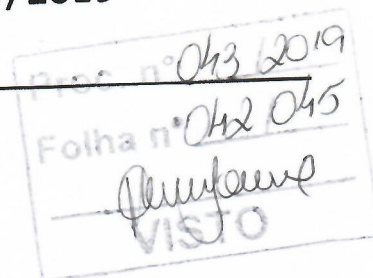 /2019
Proc. nº 043/2019
Folha nº 042 045
VISTO